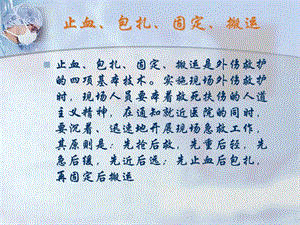 止血、包扎、固定、搬运
止血、包扎、固定、搬运是外伤救护
的四项基本技术。实施现场外伤救护
时，现场人员要本着救死扶伤的人道
主义精神，在通知就近医院的同时，
要沉着、迅速地开展现场急救工作，
其原则是：先抢后救，先重后轻，先
急后缓，先近后远；先止血后包扎，
再固定后搬运